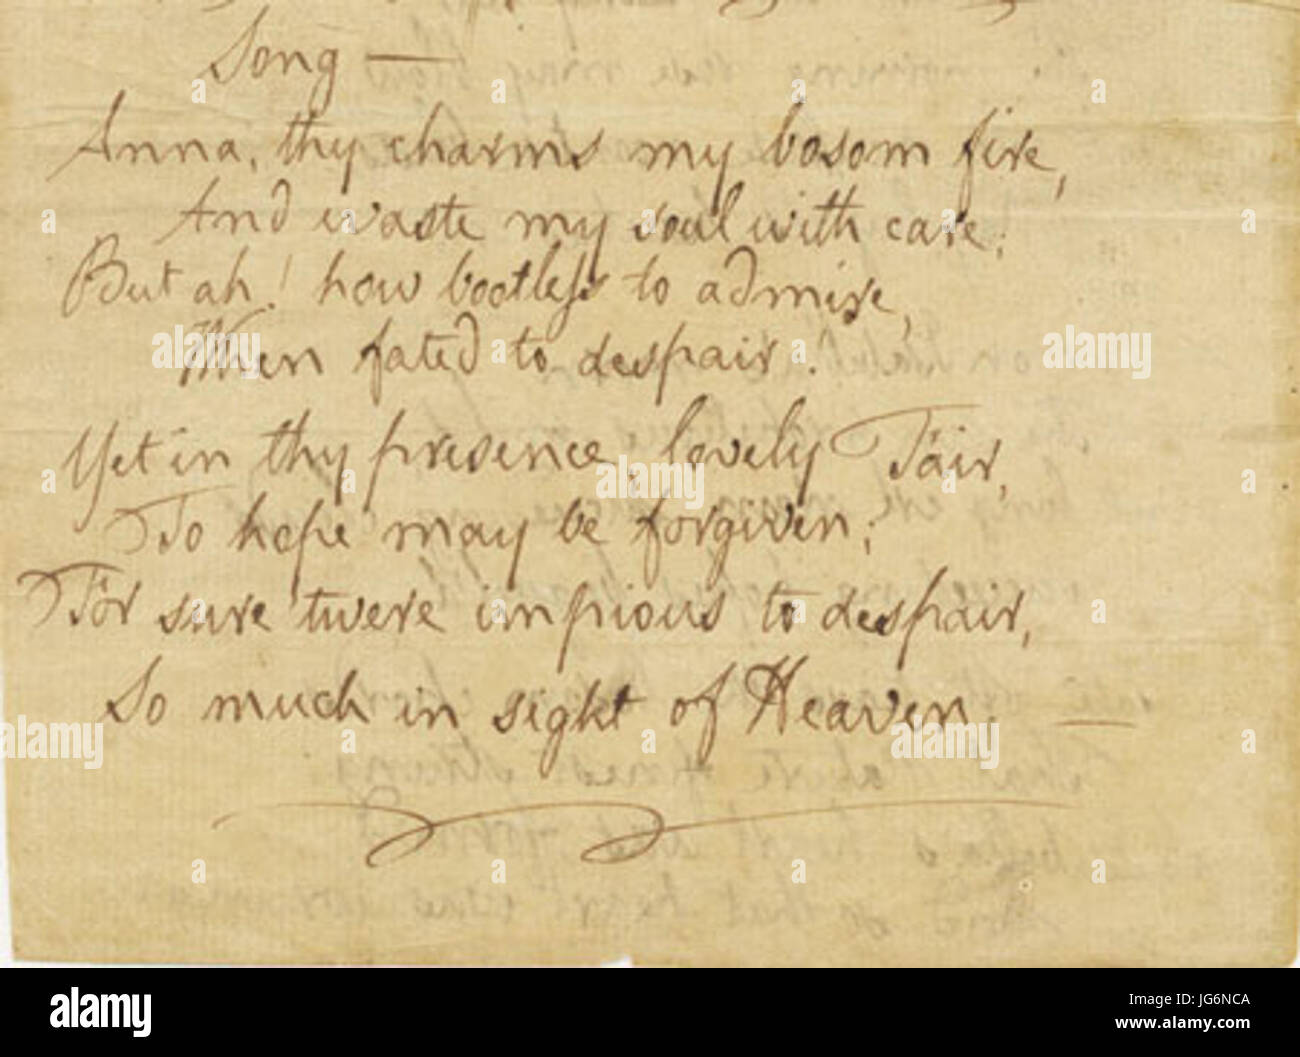 Song —
Anna, thy charms my bosom fire,
And waste my soul with care;
But ah! how bootless to admire,
When fated to despair!
Yet in thy presence, lovely Fair,
To hope may be forgiven;
For sure 'twere impious to despair,
So much in sight of Heaven. —
a a a a
a a a
alamy alamy
a a a
alamy
a a a a
alamy alamy
a a a a
alamy
JG6NCA
www.alamy.com